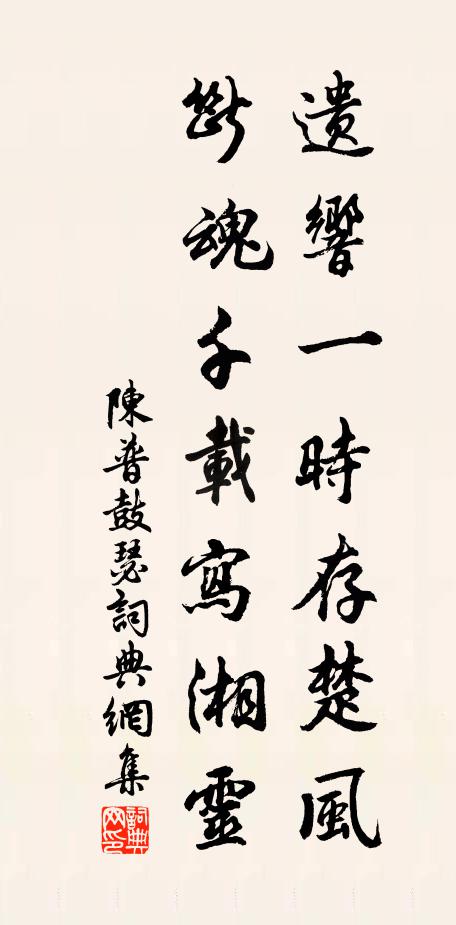 遺響一時存楚風
斷魂千載寫湘靈
陳普鼓瑟詞典網集
詞典网印